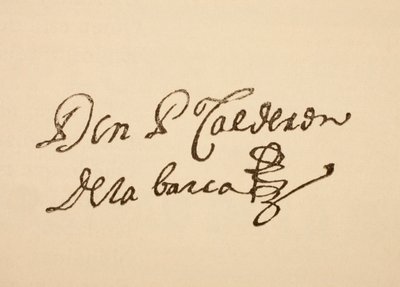 Don P Calderon
Dela barca